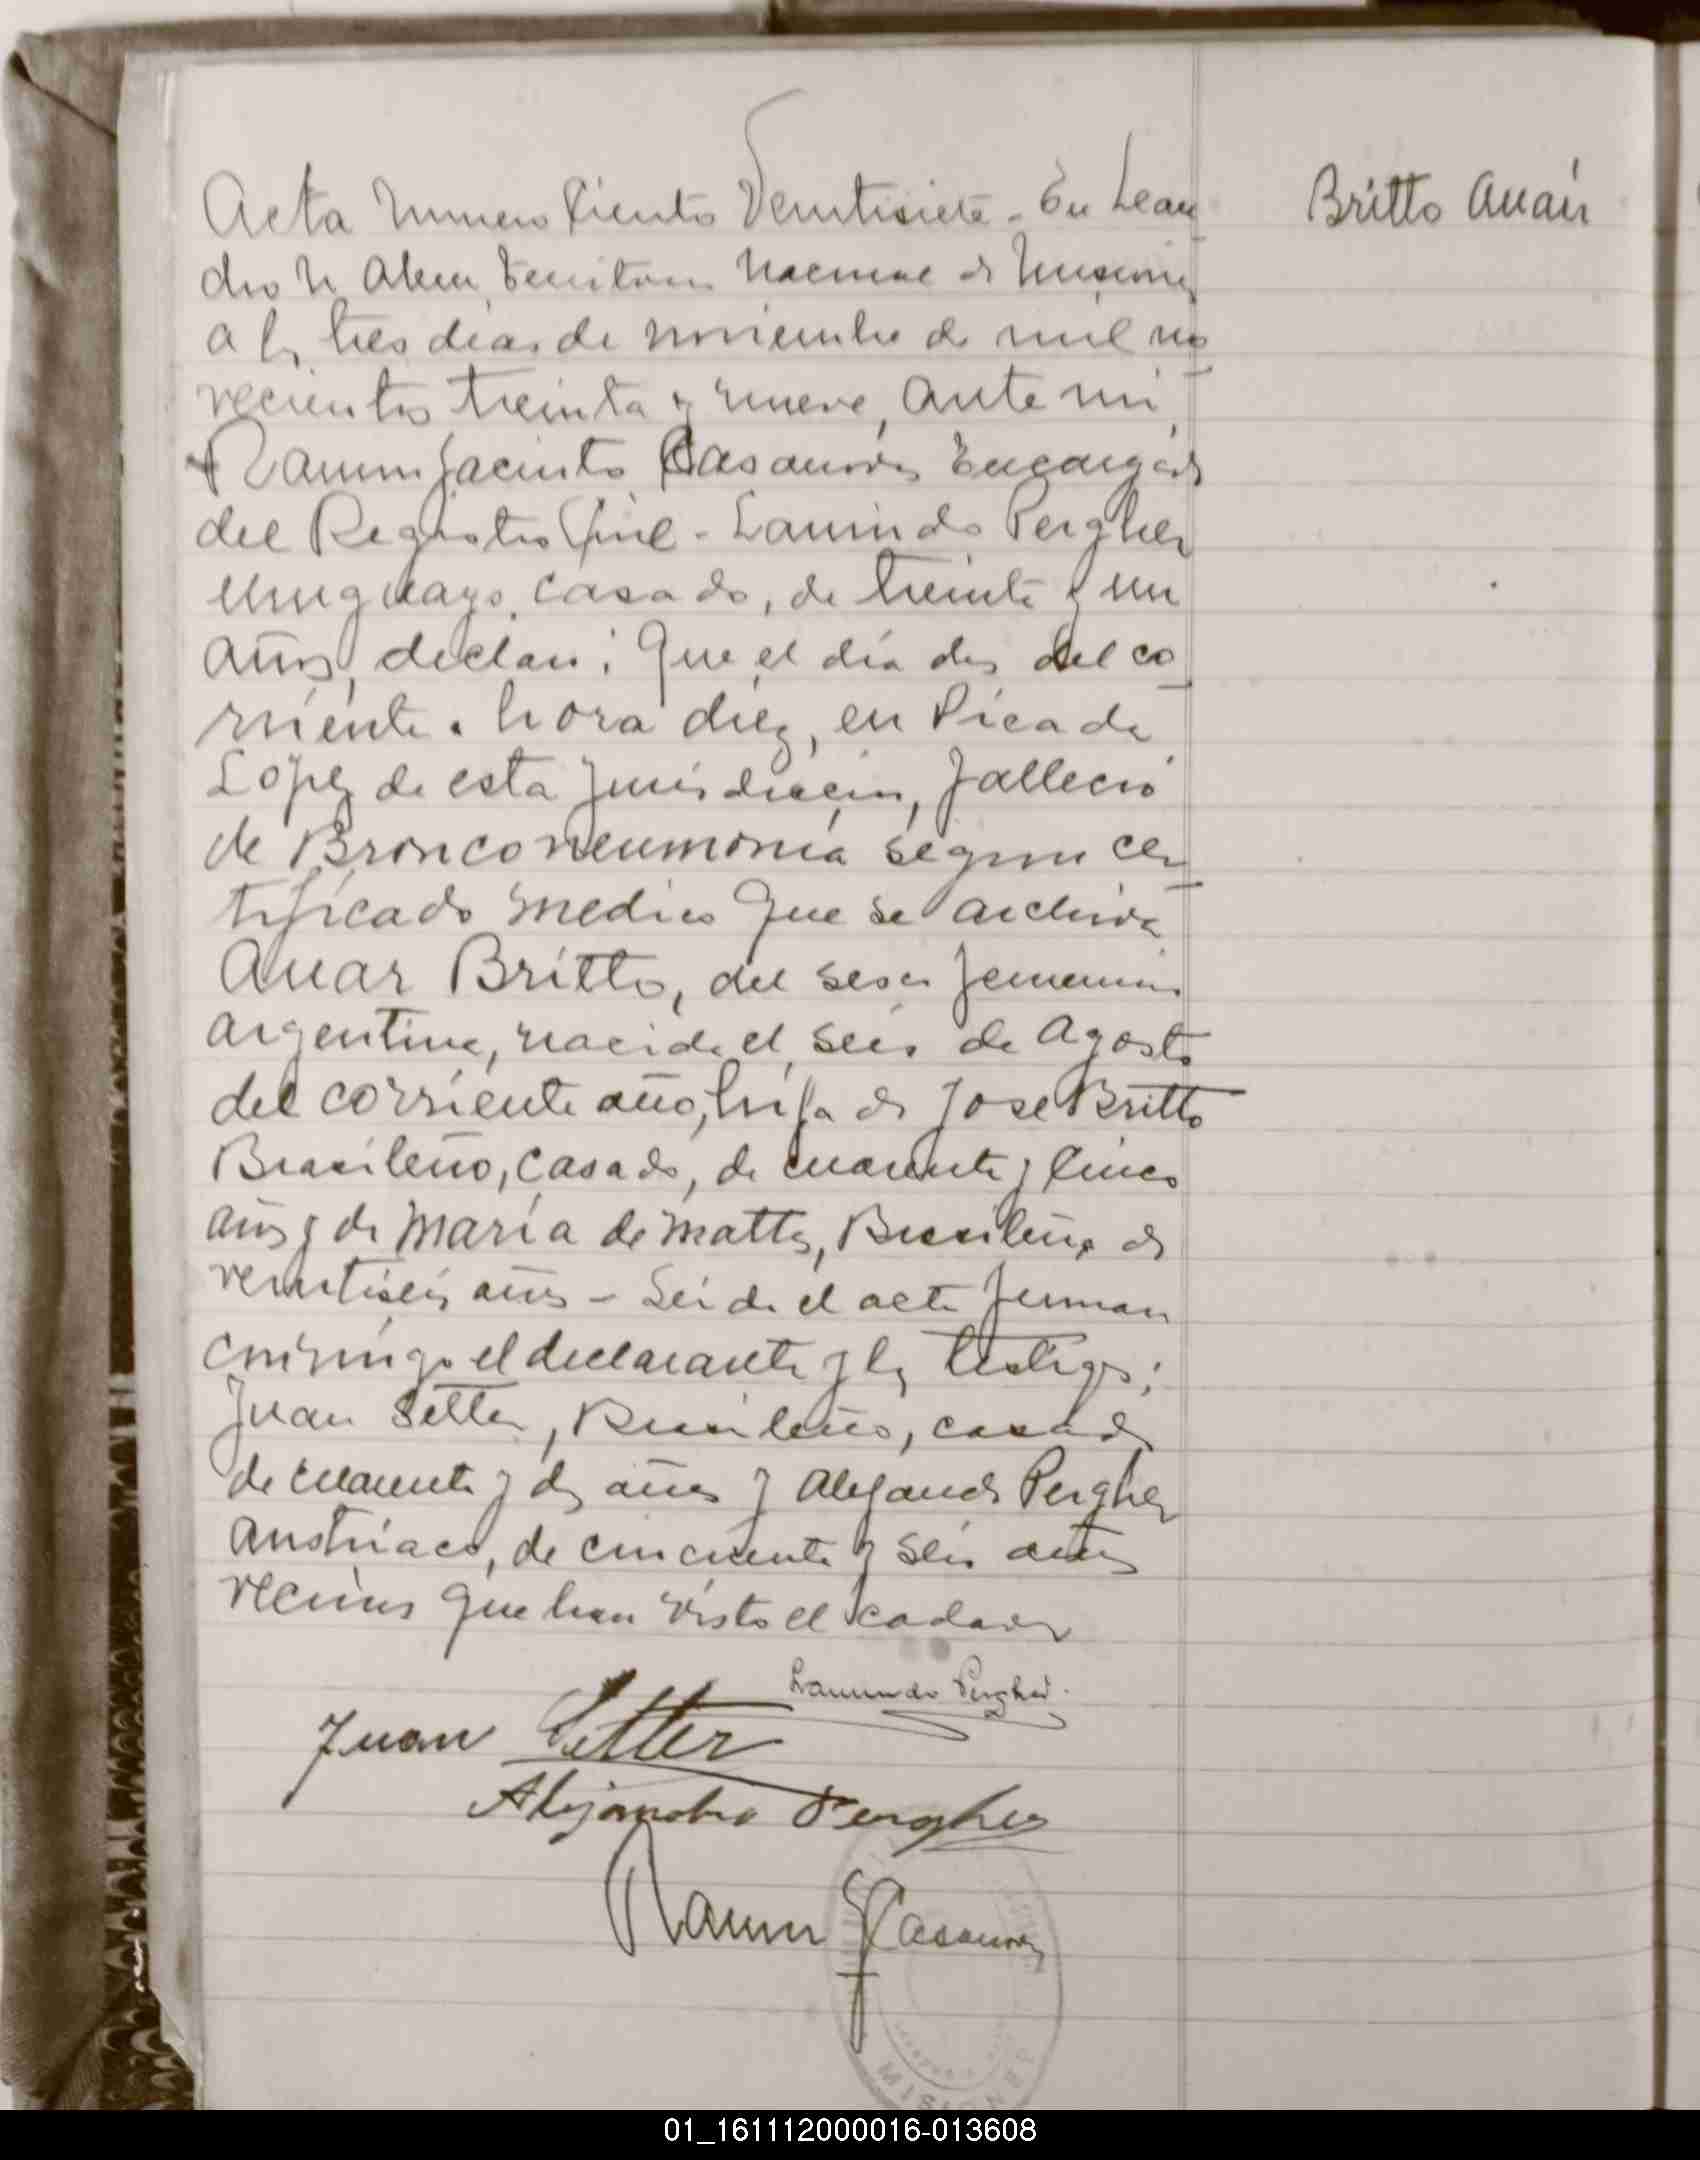 Acta Numero Ciento Veintisiete - En Lean
dro N Alem, Territorio Nacional de Misiones
a los tres dias de noviembre de mil no
vecientos treinta y nueve, ante mi
Ramon Jacinto Casanova Encargado
del Registro Civil - Laurindo Pergher
Uruguayo, casado, de treinta y un
años, declaró: Que el día dos del co
rriente a hora diez, en Picada
López de esta Jurisdicción, falleció
de Bronconeumonía según cer
tificado medico que se archiva
Anair Britto, del sexo femenino
argentina, nacida el seis de Agosto
del corriente año, hija de Jose Britto
Brasileño, casado, de cuarenta y cinco
años y de María de Mattos, Brasileña de
veintiseis años - Leida el acta firman
conmigo el declarante y los testigos:
Juan Setter, Brasileño, casado
de cuarenta y dos años y Alejandro Pergher
austriaco, de cincuenta y seis años
vecinos que han visto el cadaver
Laurindo Pergher
Juan Setter
Alejandro Pergher
Ramon J Casanova
Britto Anair
MISIONES
01_161112000016-013608